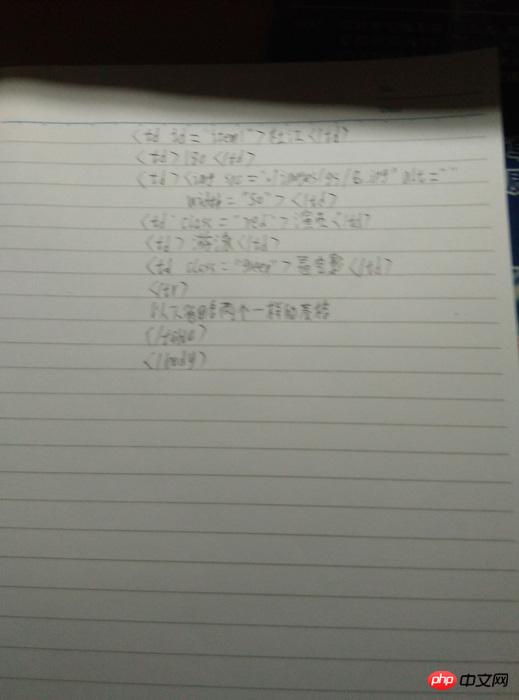 <td id="item1">杜江</td>
<td>130</td>
<td><img src="../images/gs/6.jpg" alt=""
width="50"></td>
<td class="red">演员</td>
<td>游泳</td>
<td class="green"></td>
</tr>
以下省略两个一样的表格
</table>
</body>
php 中文网